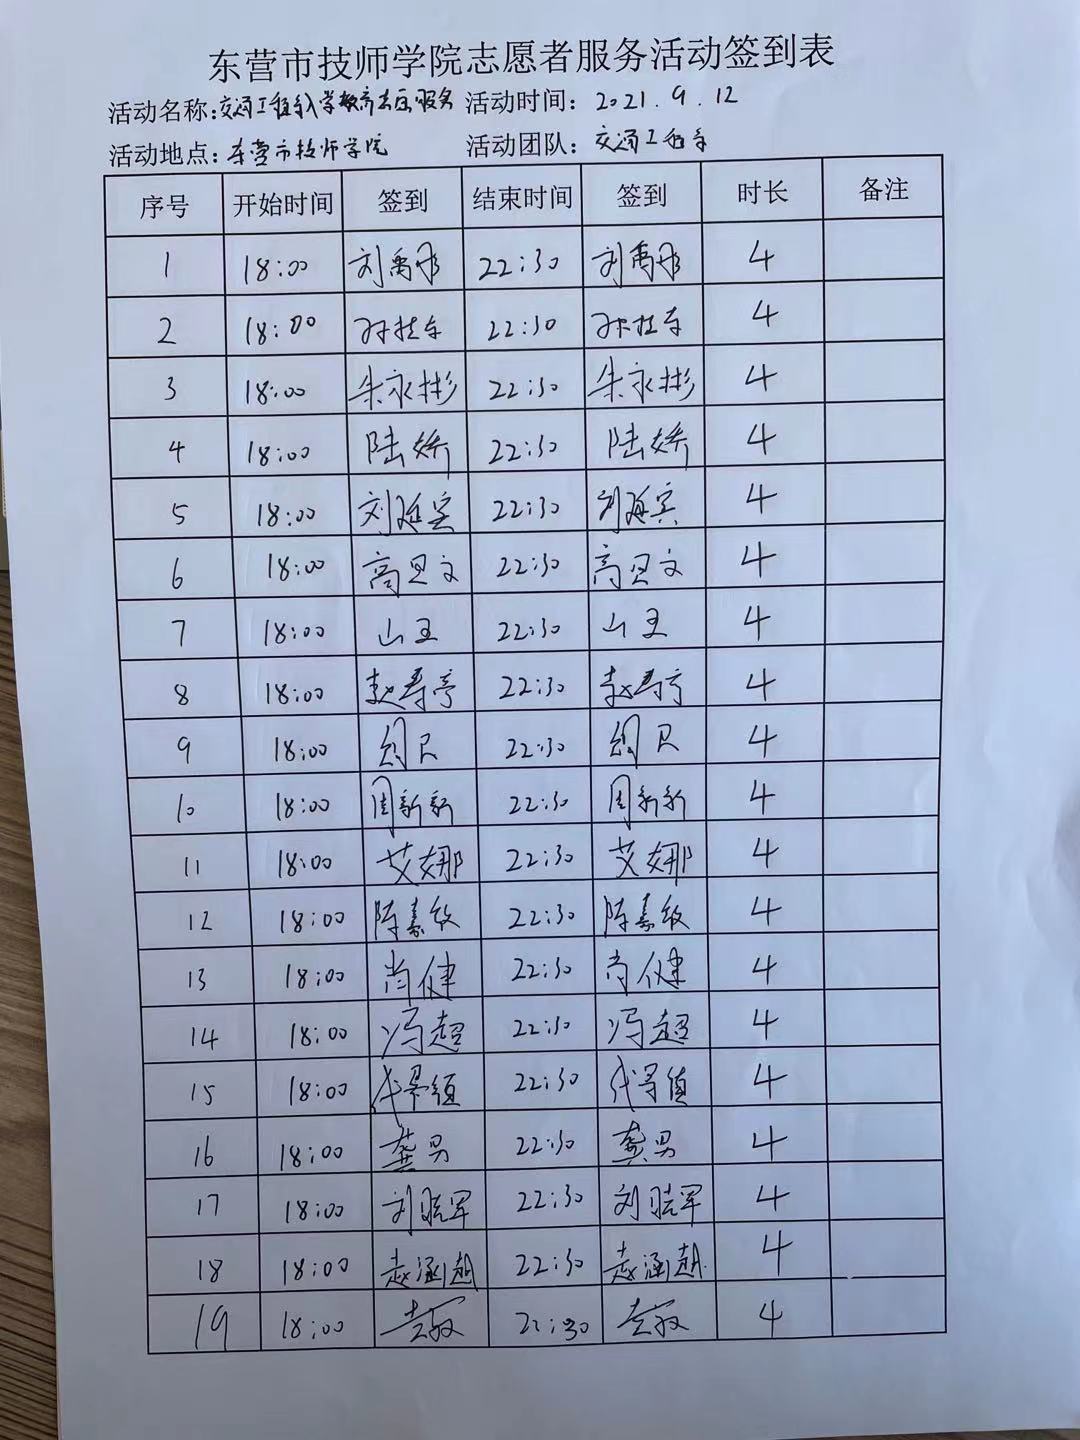 东营市技师学院志愿者服务活动签到表
活动名称:交通工程系入学教育志愿服务 活动时间: 2021.9.12
活动地点: 东营市技师学院 活动团队: 交通工程系
序号 开始时间 签到 结束时间 签到 时长 备注
1 18:00 刘禹彤 22:30 刘禹彤 4
2 18:00 22:30 4
3 18:00 朱永彬 22:30 朱永彬 4
4 18:00 陆娇 22:30 陆娇 4
5 18:00 刘延宾 22:30 刘延宾 4
6 18:00 高思文 22:30 高思文 4
7 18:00 山王 22:30 山王 4
8 18:00 赵寿亭 22:30 赵寿亭 4
9 18:00 22:30 4
10 18:00 周新新 22:30 周新新 4
11 18:00 艾娜 22:30 艾娜 4
12 18:00 陈嘉敏 22:30 陈嘉敏 4
13 18:00 尚健 22:30 尚健 4
14 18:00 冯超 22:30 冯超 4
15 18:00 22:30 4
16 18:00 龚男 22:30 龚男 4
17 18:00 刘晓军 22:30 刘晓军 4
18 18:00 赵涵越 22:30 赵涵越 4
19 18:00 22:30 4